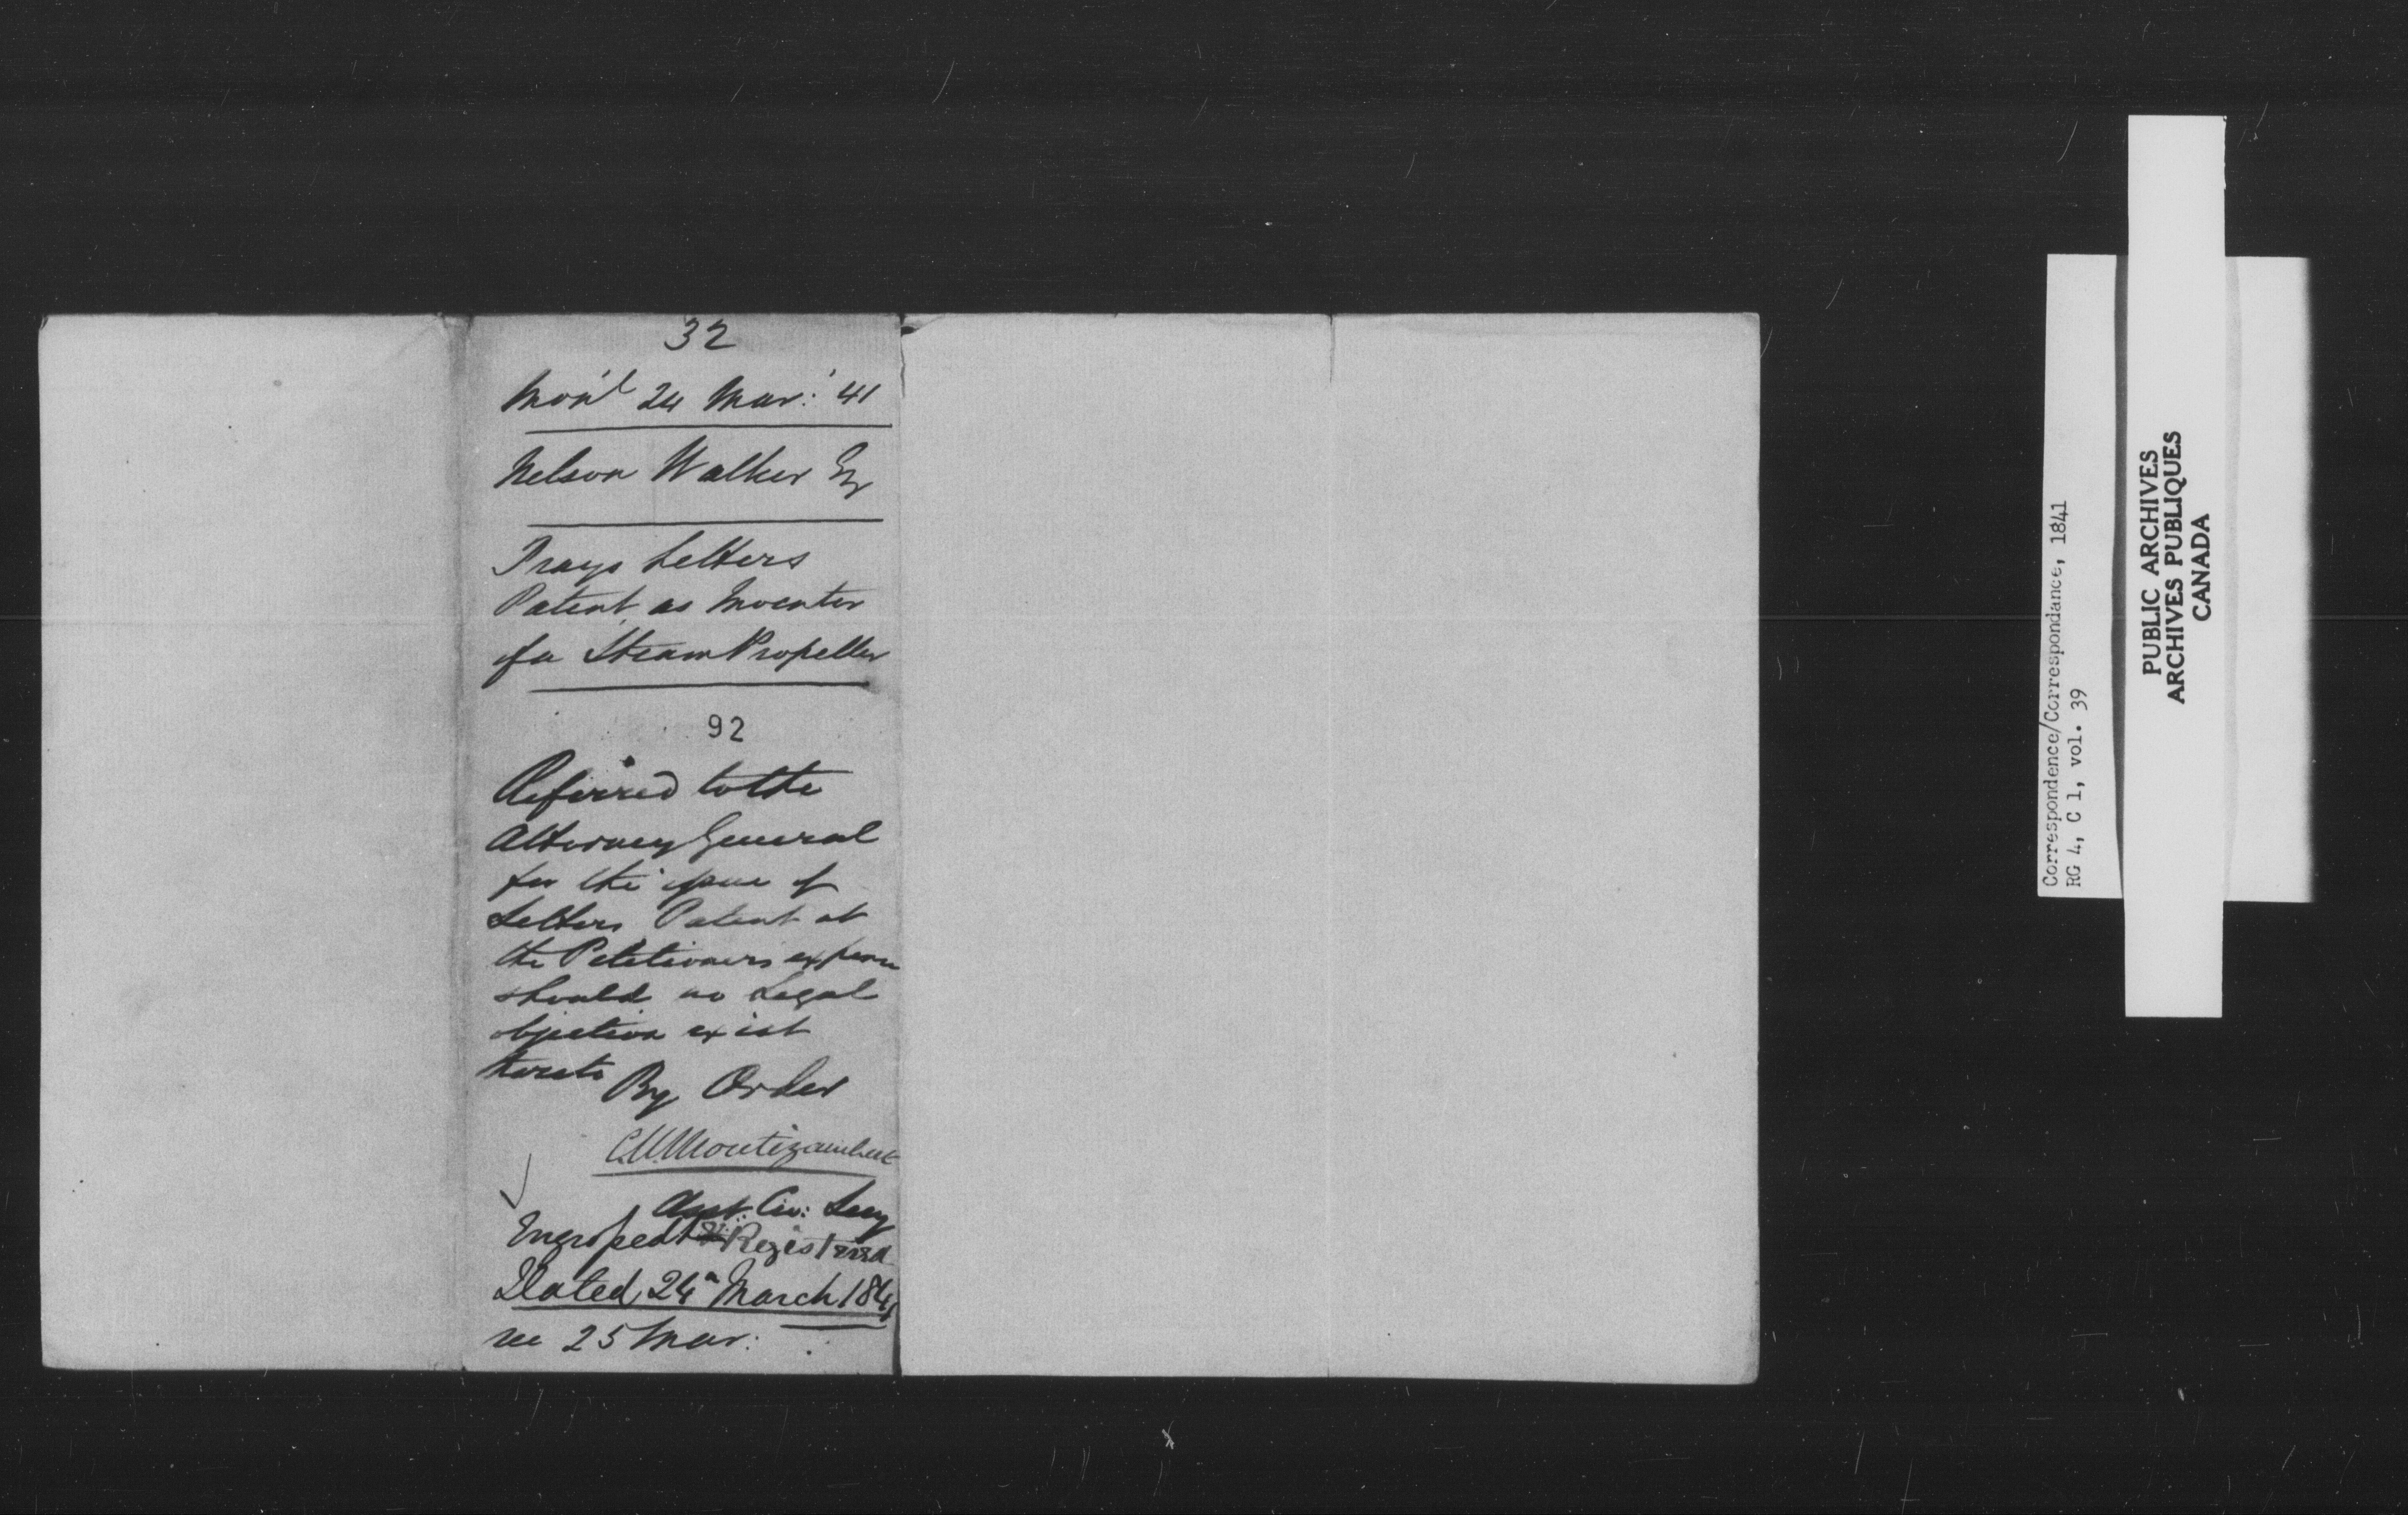 32
Mon'l 24 Mar: '41
Nelson Walker Esq
Prays Letters
Patent as Inventor
of a Steam Propeller
92
Referred to the
Attorney General
for the issue of
Letters Patent at
the Petitioners expense
should no Legal
objection exist
thereto
By Order
C.M. Montizambert
Asst. Civ: Secy
Engrossed & Registered
Dated 24th March 1841
rec 25 Mar:
Correspondence/Correspondance, 1841
RG 4, C 1, vol. 39
PUBLIC ARCHIVES
ARCHIVES PUBLIQUES
CANADA